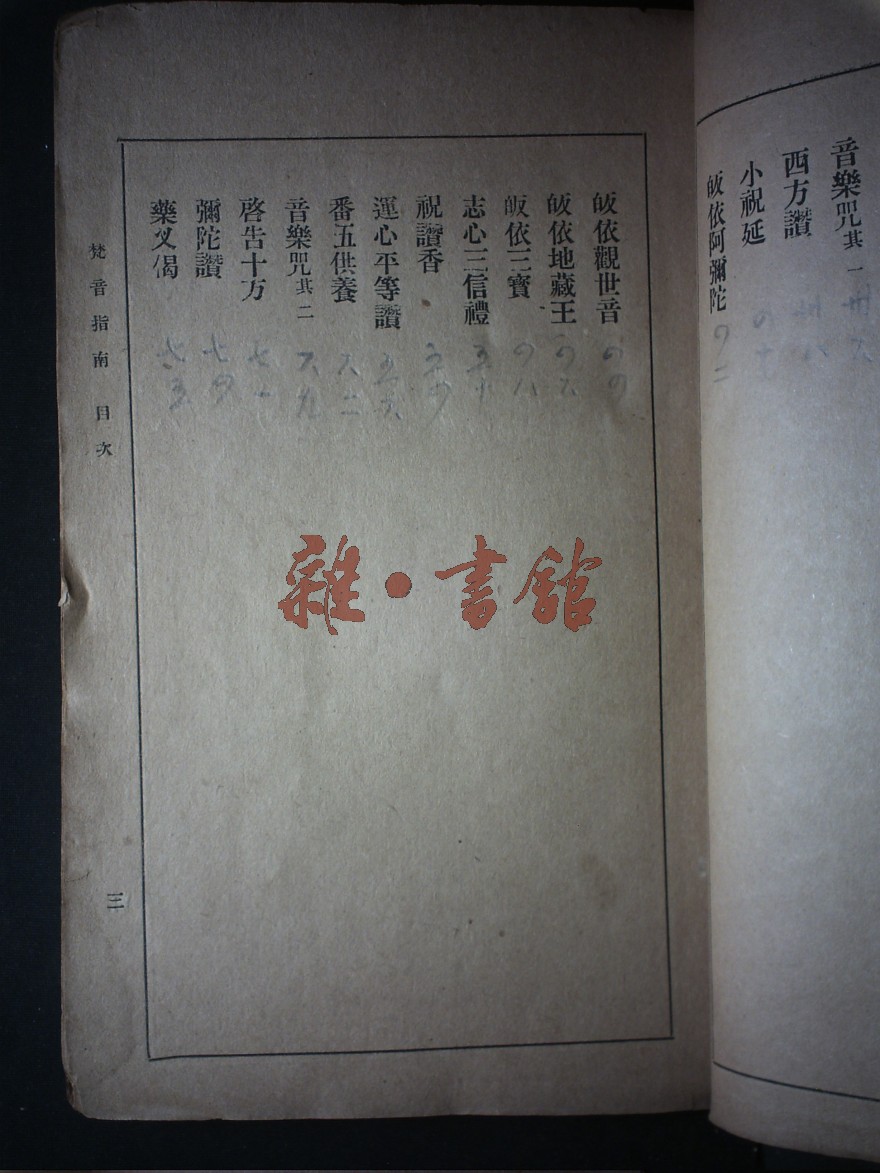 音樂咒其一 卅六
西方讚
小祝延
皈依阿彌陀
皈依觀世音
皈依地藏王
皈依三寶
志心三信禮
祝讚香
運心平等讚
番五供養
音樂咒其二 六九
啓吿十方 七一
彌陀讚 七四
藥叉偈 七五
梵音指南 目次
三
雜·書館